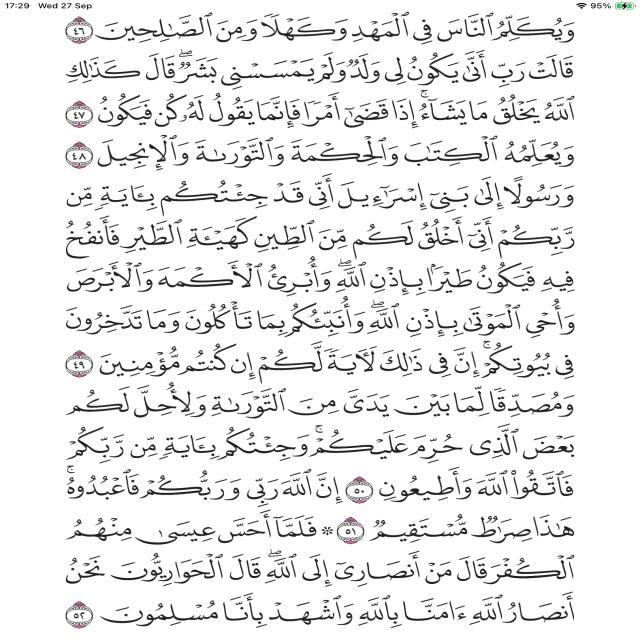 17:29 Wed 27 Sep 95%
وَيُكَلِّمُ ٱلنَّاسَ فِي ٱلۡمَهۡدِ وَكَهۡلٗا وَمِنَ ٱلصَّٰلِحِينَ ٤٦
قَالَتۡ رَبِّ أَنَّىٰ يَكُونُ لِي وَلَدٞ وَلَمۡ يَمۡسَسۡنِي بَشَرٞۖ قَالَ كَذَٰلِكِ
ٱللَّهُ يَخۡلُقُ مَا يَشَآءُۚ إِذَا قَضَىٰٓ أَمۡرٗا فَإِنَّمَا يَقُولُ لَهُۥ كُن فَيَكُونُ ٤٧
وَيُعَلِّمُهُ ٱلۡكِتَٰبَ وَٱلۡحِكۡمَةَ وَٱلتَّوۡرَىٰةَ وَٱلۡإِنجِيلَ ٤٨
وَرَسُولًا إِلَىٰ بَنِيٓ إِسۡرَٰٓءِيلَ أَنِّي قَدۡ جِئۡتُكُم بِـَٔايَةٖ مِّن
رَّبِّكُمۡ أَنِّيٓ أَخۡلُقُ لَكُم مِّنَ ٱلطِّينِ كَهَيۡـَٔةِ ٱلطَّيۡرِ فَأَنفُخُ
فِيهِ فَيَكُونُ طَيۡرَۢا بِإِذۡنِ ٱللَّهِۖ وَأُبۡرِئُ ٱلۡأَكۡمَهَ وَٱلۡأَبۡرَصَ
وَأُحۡيِ ٱلۡمَوۡتَىٰ بِإِذۡنِ ٱللَّهِۖ وَأُنَبِّئُكُم بِمَا تَأۡكُلُونَ وَمَا تَدَّخِرُونَ
فِي بُيُوتِكُمۡۚ إِنَّ فِي ذَٰلِكَ لَأٓيَةٗ لَّكُمۡ إِن كُنتُم مُّؤۡمِنِينَ ٤٩
وَمُصَدِّقٗا لِّمَا بَيۡنَ يَدَيَّ مِنَ ٱلتَّوۡرَىٰةِ وَلِأُحِلَّ لَكُم
بَعۡضَ ٱلَّذِي حُرِّمَ عَلَيۡكُمۡۚ وَجِئۡتُكُم بِـَٔايَةٖ مِّن رَّبِّكُمۡ
فَٱتَّقُواْ ٱللَّهَ وَأَطِيعُونِ ٥٠ إِنَّ ٱللَّهَ رَبِّي وَرَبُّكُمۡ فَٱعۡبُدُوهُۚ
هَٰذَا صِرَٰطٞ مُّسۡتَقِيمٞ ٥١ ۞ فَلَمَّآ أَحَسَّ عِيسَىٰ مِنۡهُمُ
ٱلۡكُفۡرَ قَالَ مَنۡ أَنصَارِيٓ إِلَى ٱللَّهِۖ قَالَ ٱلۡحَوَارِيُّونَ نَحۡنُ
أَنصَارُ ٱللَّهِ ءَامَنَّا بِٱللَّهِ وَٱشۡهَدۡ بِأَنَّا مُسۡلِمُونَ ٥٢